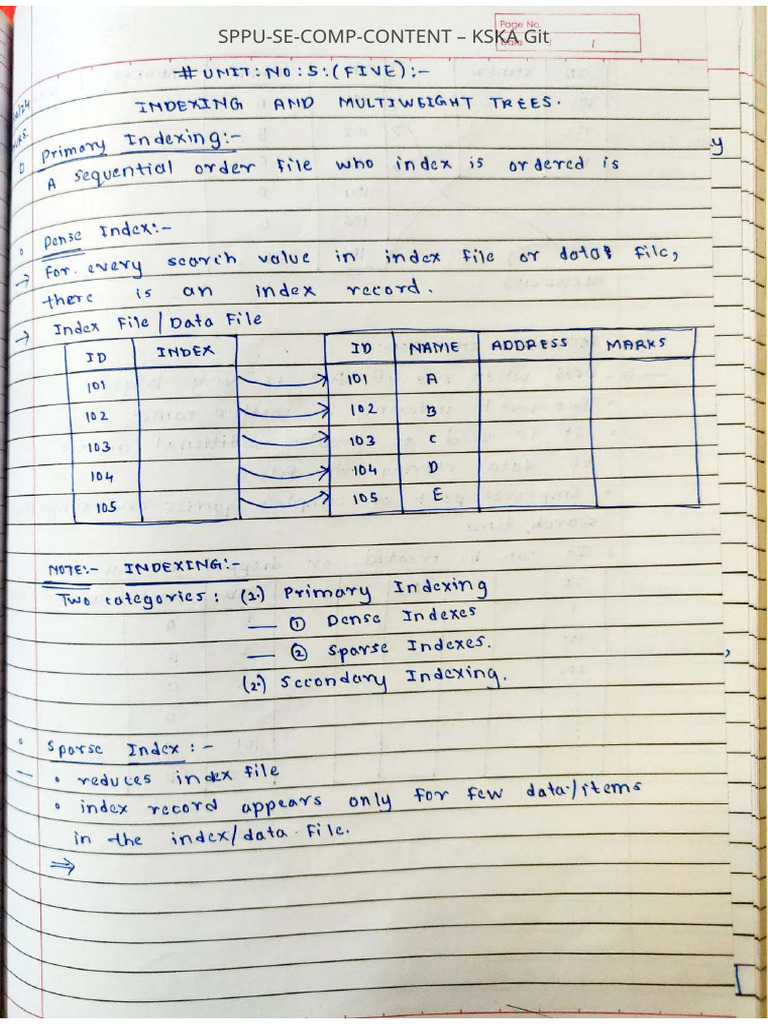 SPPU-SE-COMP-CONTENT – KSKA Git
Page No.
Date / /
# UNIT: NO: 5: (FIVE):-
INDEXING AND MULTIWEIGHT TREES.
Primary Indexing:-
A sequential order file who index is ordered is
y
• Dense Index:-
→ For every search value in index file or data file,
there is an index record.
→ Index File / Data File
ID INDEX ID NAME ADDRESS MARKS
101 101 A
102 102 B
103 103 C
104 104 D
105 105 E
NOTE:- INDEXING:-
Two categories: (1.) Primary Indexing
— ① Dense Indexes
— ② Sparse Indexes.
(2.) Secondary Indexing.
• Sparse Index:-
— • reduces index file
• index record appears only for few data/items
in the index/data file.
⇒